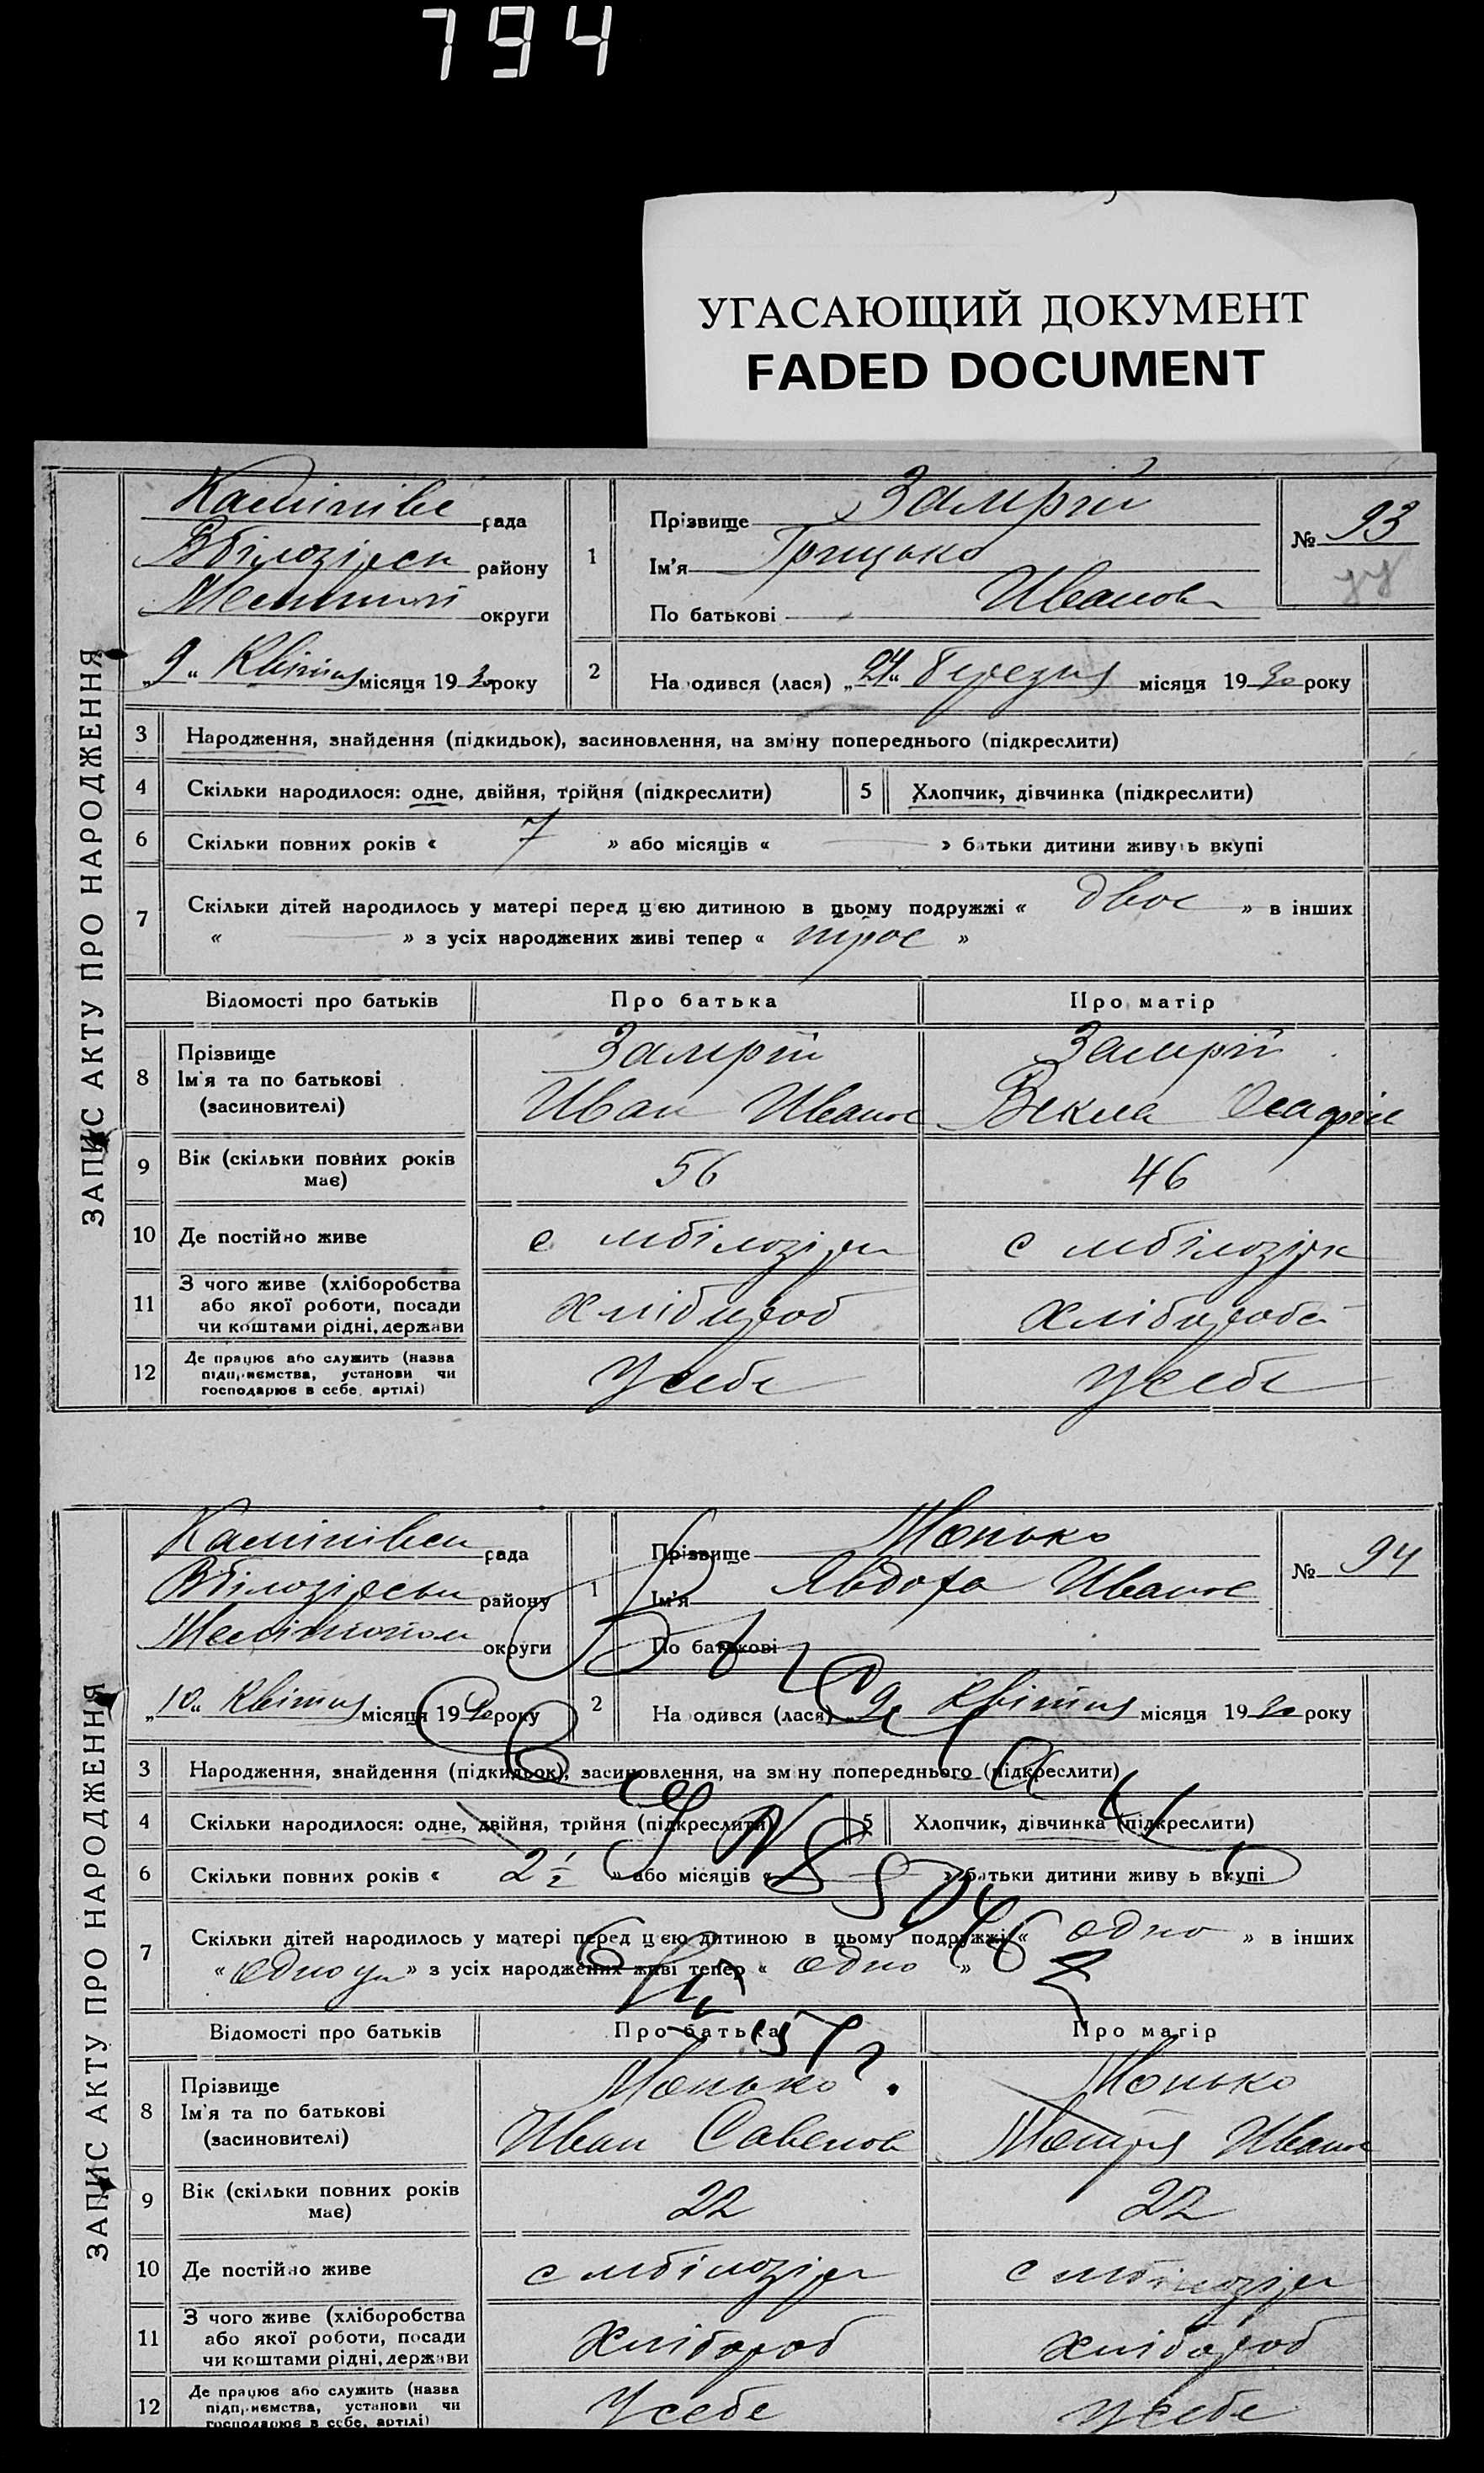 794
УГАСАЮЩИЙ ДОКУМЕНТ
FADED DOCUMENT
ЗАПИС АКТУ ПРО НАРОДЖЕННЯ
рада
району
Мелітопіл округи
„9“ Квітня місяця 1930 року
1
Прізвище
Ім'я Грицько
По батькові Иванов
№ 93
2
На одився (лася) „24“ Березня місяця 1930 року
3 Народження, знайдення (підкидьок), засиновлення, на зміну попереднього (підкреслити)
4 Скільки народилося: одне, двійня, трійня (підкреслити)
5 Хлопчик, дівчинка (підкреслити)
6 Скільки повних років « 7 » або місяців « — » батьки дитини живуть вкупі
7 Скільки дітей народилось у матері перед цією дитиною в цьому подружжі « двоє » в інших
« — » з усіх народжених живі тепер « троє »
Відомості про батьків Про батька Про матір
8 Прізвище
Ім'я та по батькові Иван Иванов Векла
(засиновителі)
9 Вік (скільки повних років має) 56 46
10 Де постійно живе с мбілозірк с мбілозірк
11 З чого живе (хліборобства
або якої роботи, посади хлібороб хлібороб
чи коштами рідні, держави
12 Де працює або служить (назва
підприємства, установи чи у себе у себе
господарює в себе, артілі)
ЗАПИС АКТУ ПРО НАРОДЖЕННЯ
рада
району
Мелітопол округи
„10“ Квітня місяця 1930 року
1
Прізвище Монько
Ім'я Явдоха Иванов
По батькові
№ 94
2
На одився (лася) „9“ Квітня місяця 1930 року
3 Народження, знайдення (підкидьок), засиновлення, на зміну попереднього (підкреслити)
4 Скільки народилося: одне, двійня, трійня (підкреслити)
5 Хлопчик, дівчинка (підкреслити)
6 Скільки повних років « 2½ » або місяців « — » батьки дитини живу ь вкупі
7 Скільки дітей народилось у матері перед цією дитиною в цьому подружжі « одно » в інших
« одно » з усіх народжених живі тепер « одно »
Відомості про батьків Про батька Про матір
8 Прізвище Монько Монько
Ім'я та по батькові Иван Савелов Мотря Иванов
(засиновителі)
9 Вік (скільки повних років має) 22 22
10 Де постійно живе с мбілозірк с мбілозірк
11 З чого живе (хліборобства
або якої роботи, посади хлібороб хлібороб
чи коштами рідні, держави
12 Де працює або служить (назва
підприємства, установи чи у себе у себе
господарює в себе, артілі)